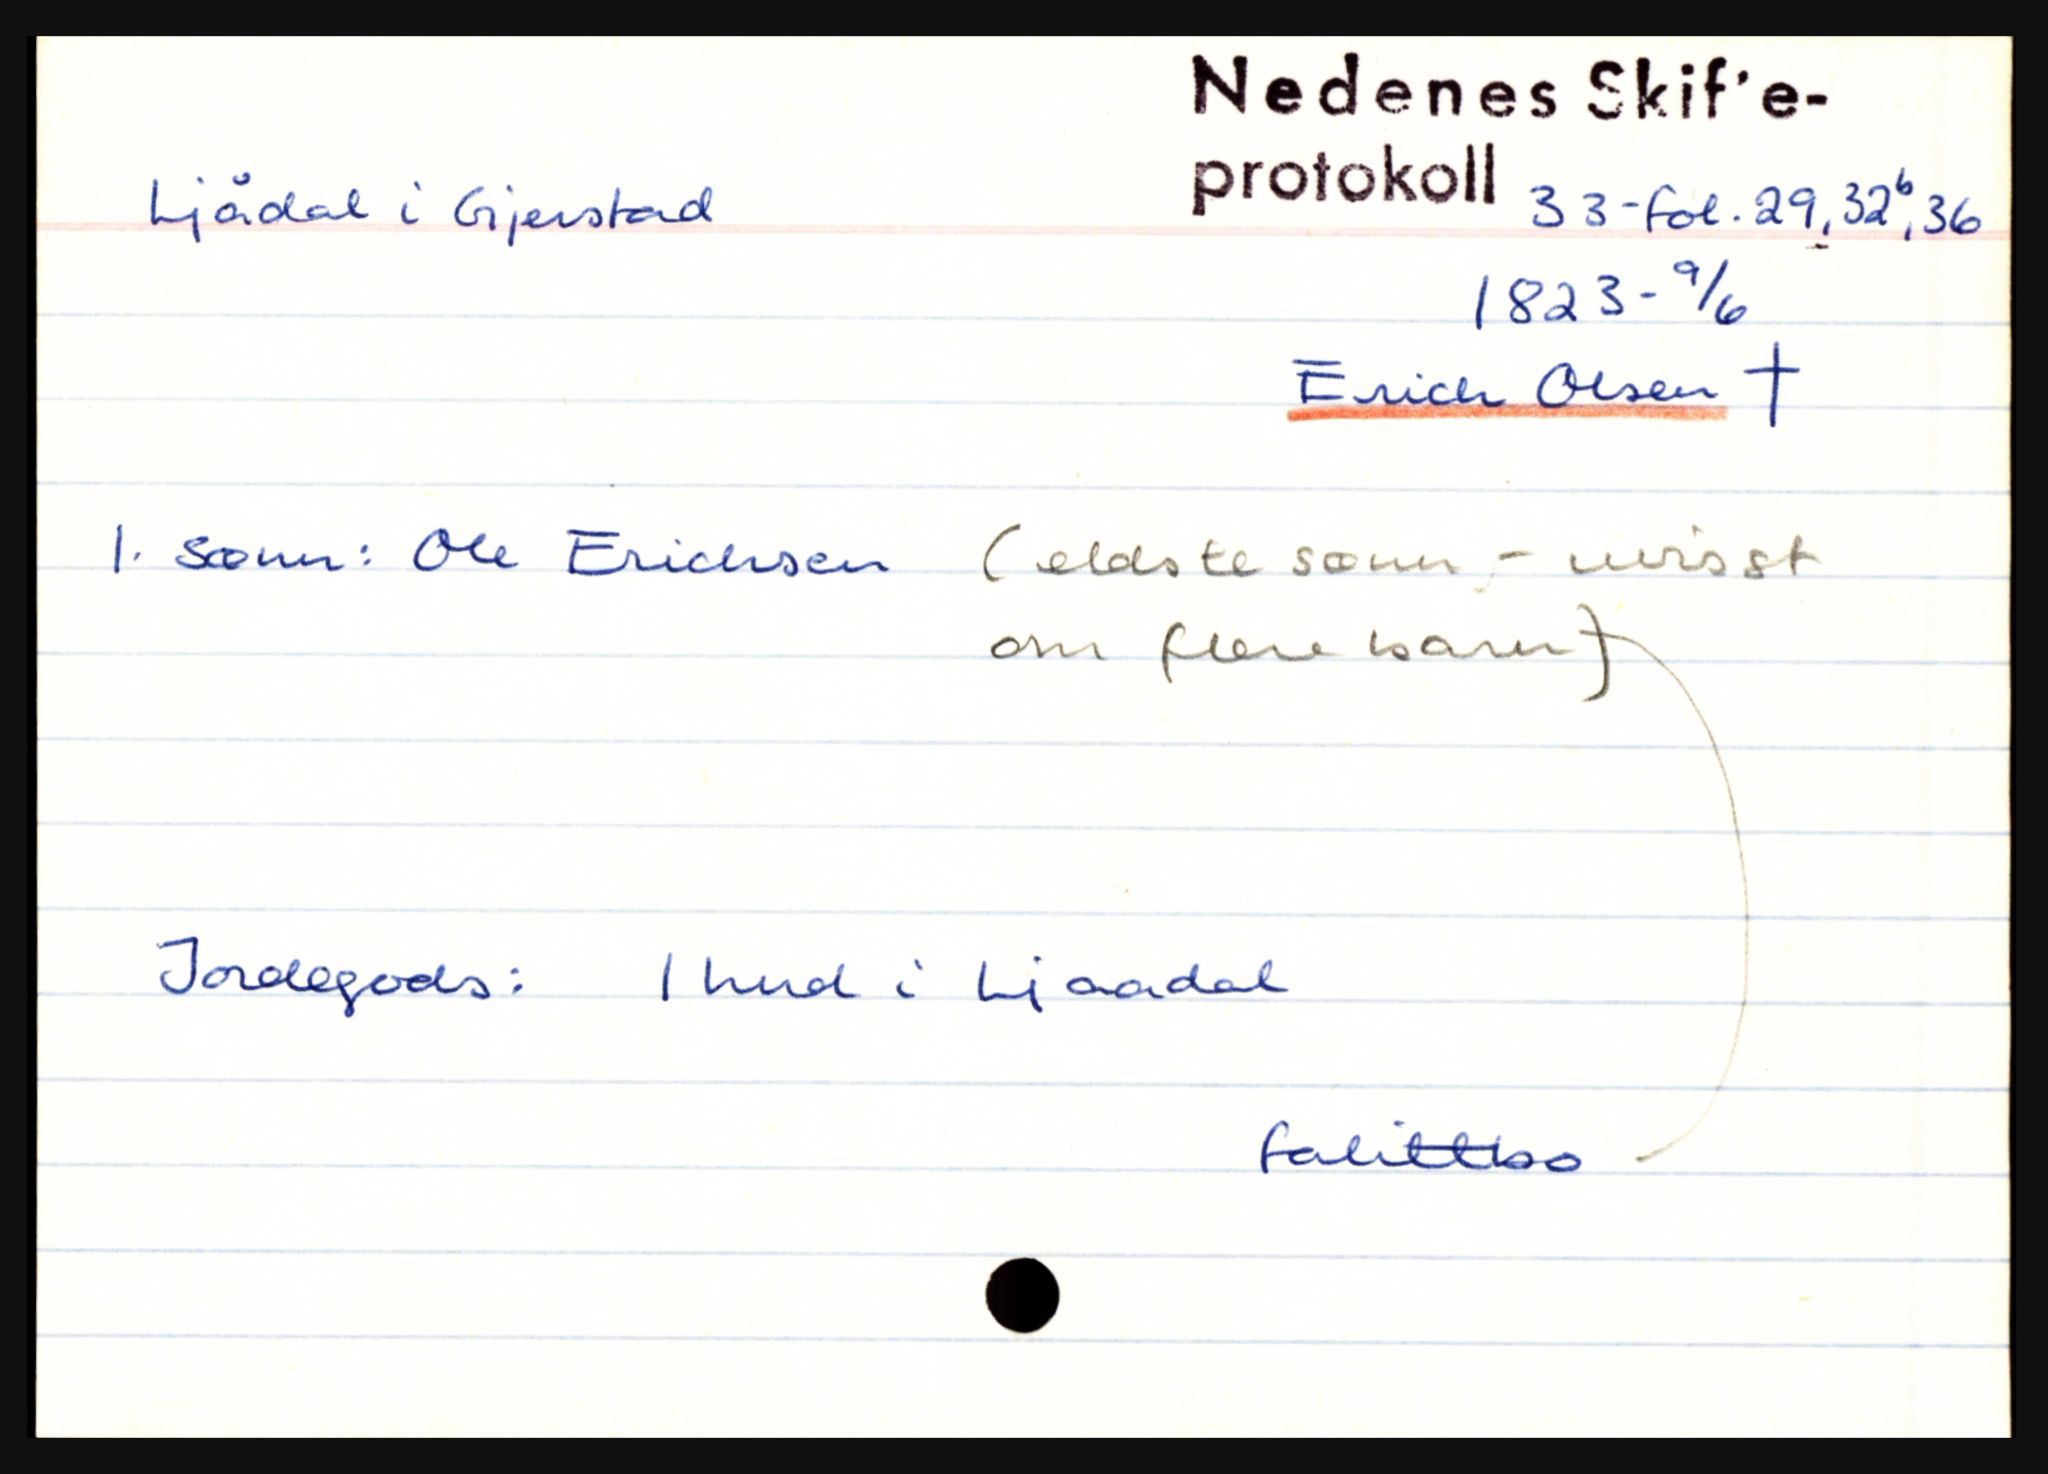 Nedenes Skif'e-
protokoll
Ljådal i Gjerstad 33-fol. 29, 32b, 36
1823- 9/6
Erich Olsen †
1. sønn: Ole Erichsen (eldste sønn - uvisst
om flere barn)
Jordegods: 1 hud i Ljaadal
falittbo